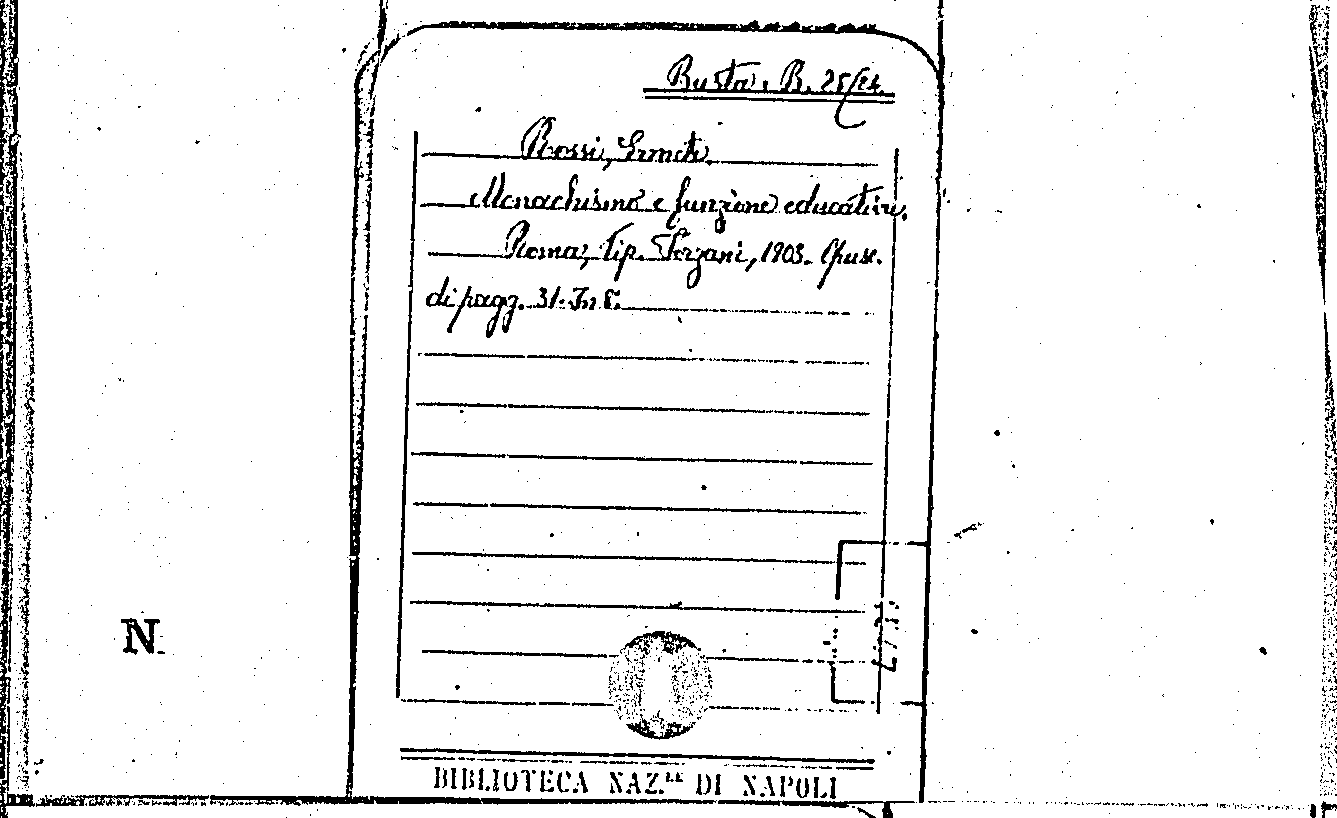 Busta. B. 25/24.
Rossi,
Monachismo e funzione educativa.
Roma, Tip. Forzani, 1903. Opusc.
di pagg. 31. In 8.
N.
BIBLIOTECA NAZ.LE DI NAPOLI